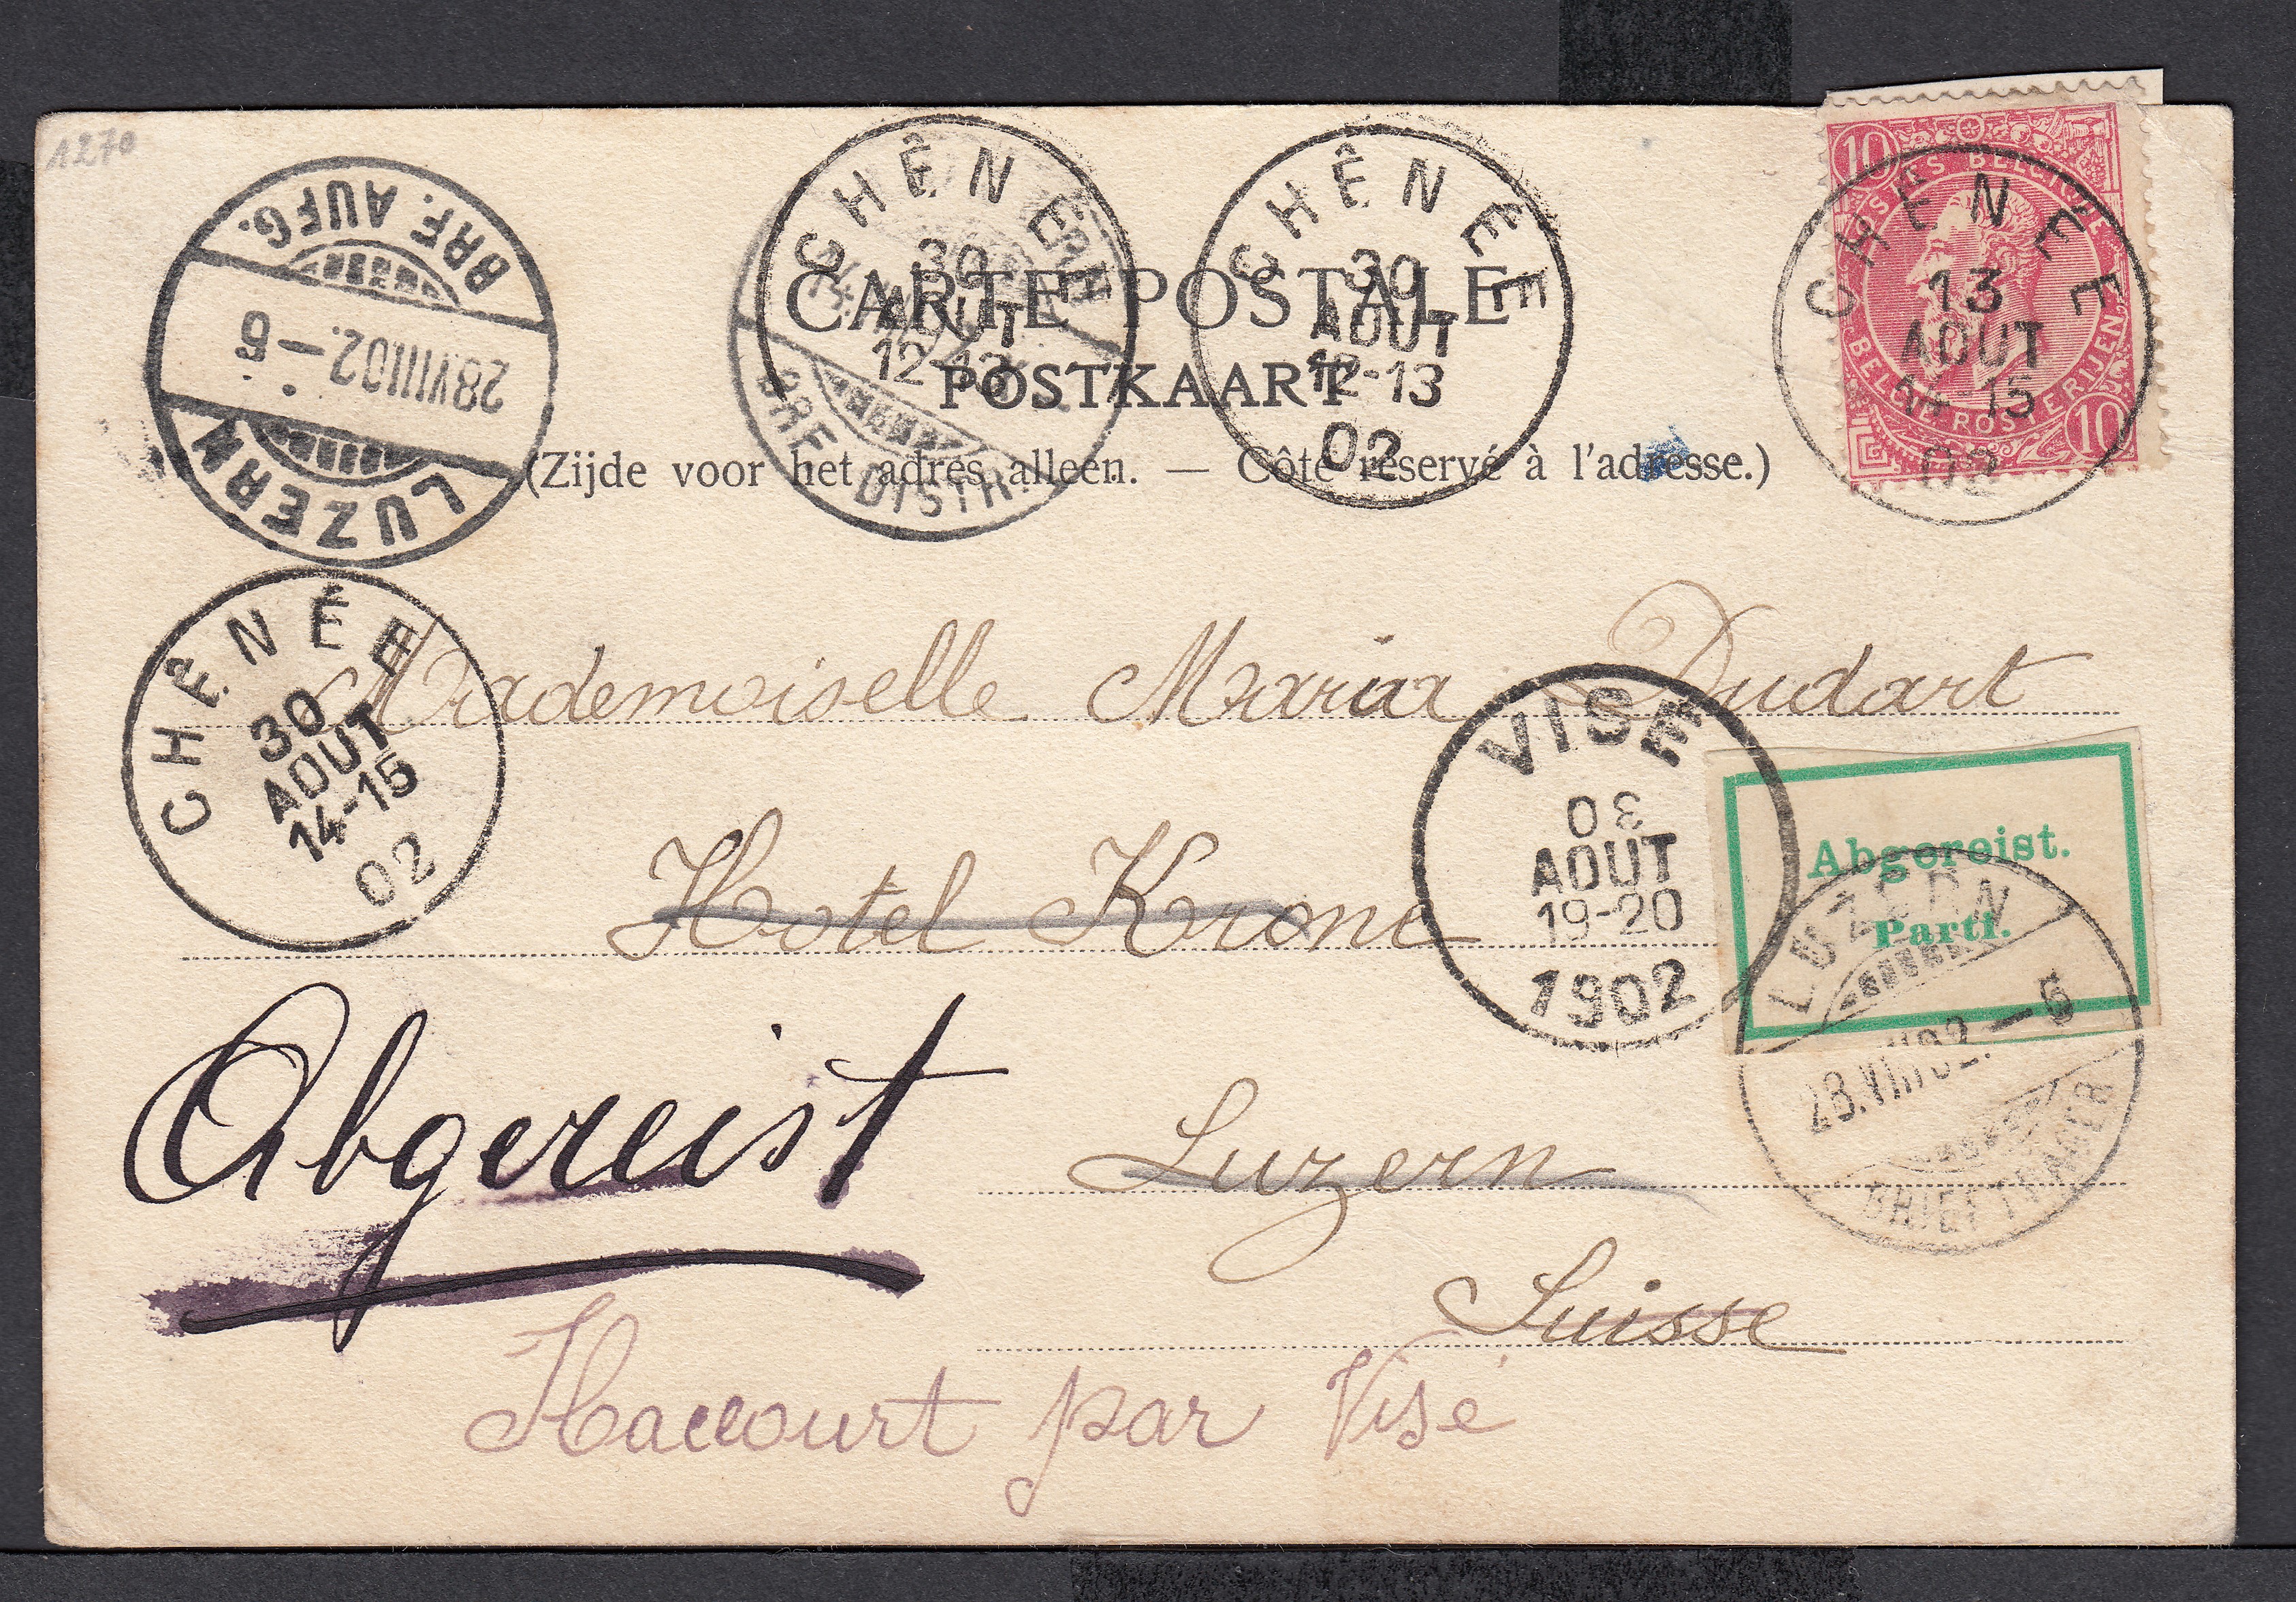 1270
BRF. AUFG.
28.VIII.02.–5
LUZERN
CHÊNÉE
30
AOUT
12-13
BRF. DISTR.
CHÊNÉE
30
AOUT
12-13
02
10
POSTES BELGIQUE
BELG. POSTERIJEN
10
CHÊNÉE
13
AOUT
14-15
02
CARTE POSTALE
POSTKAART
(Zijde voor het adres alleen. — Côté réservé à l'adresse.)
CHÊNÉE
30
AOUT
14-15
02
Mademoiselle Maria Dudart
Hotel Krone
VISE
AOUT
19-20
1902
Abgereist.
Parti.
LUZERN
28.VIII.02.–5
BRIEFTRÄGER
Abgereist
Luzern
Suisse
Haccourt par Visé